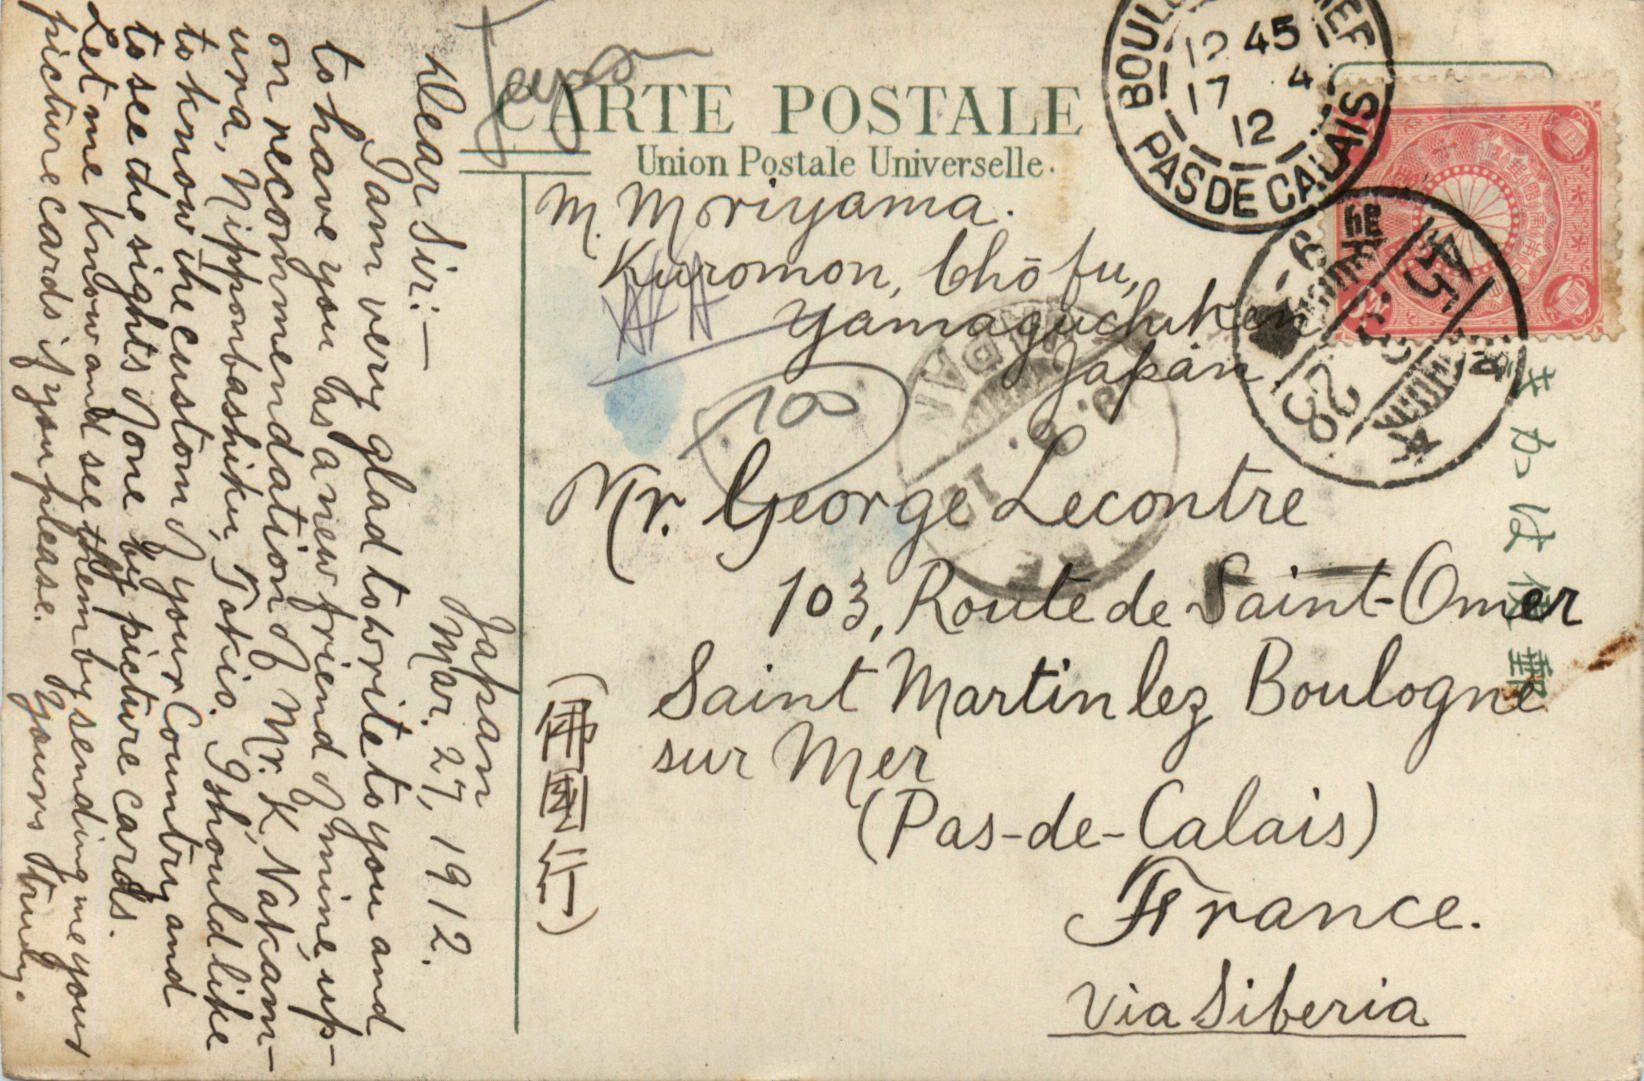 Japan
CARTE POSTALE
Union Postale Universelle.
M. Moriyama.
Kuromon, Chōfu,
Yamaguchi Ken
Japan
100
Mr. George Lecontre
103, Route de Saint-Omer
Saint Martin lez Boulogne
sur Mer
(Pas-de-Calais)
France.
Via Siberia
(佛國行)
Japan
Mar. 27, 1912.
Dear Sir:—
I am very glad to write to you and
to have you as a new friend of mine up-
on recommendation of Mr. K. Nakam-
ura, Nipponbashiku, Tokio. I should like
to know the custom of your Country and
to see the sights of one by picture cards.
Let me know and see them by sending me your
picture cards if you please. Yours truly.
12 45
17 4
12
PAS DE CALAIS
45
3 28
郵便はかき